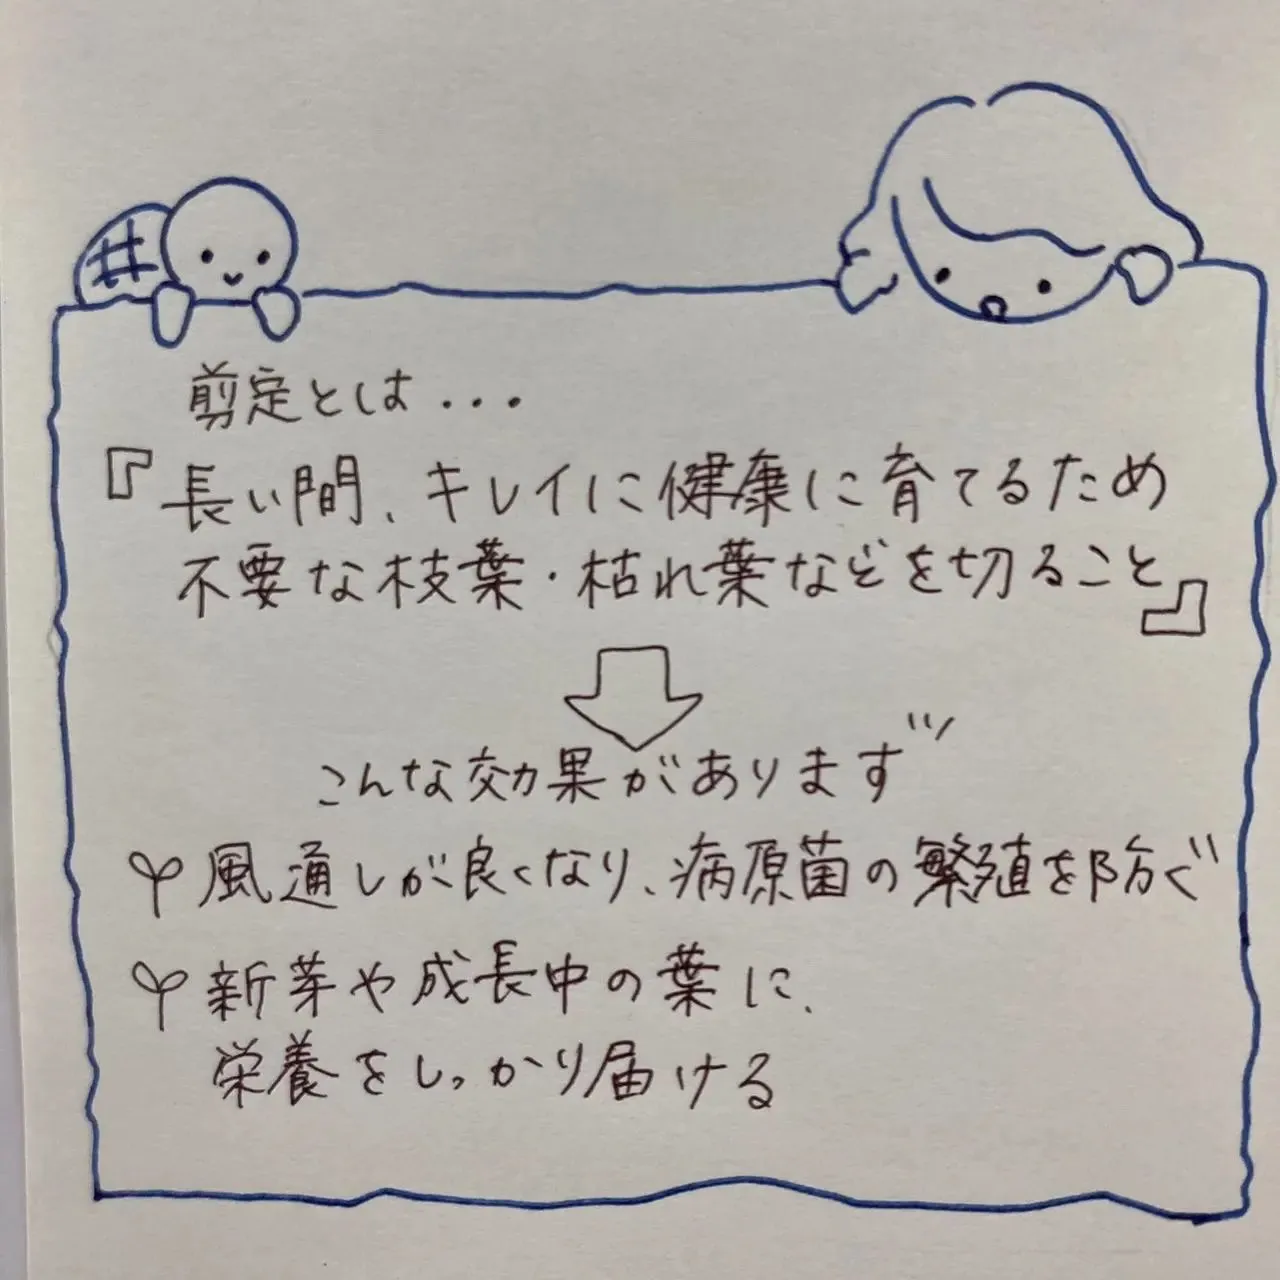 剪定とは...
『長い間、キレイに健康に育てるため
不要な枝葉・枯れ葉などを切ること』
こんな効果があります
風通しが良くなり、病原菌の繁殖を防ぐ
新芽や成長中の葉に、
栄養をしっかり届ける